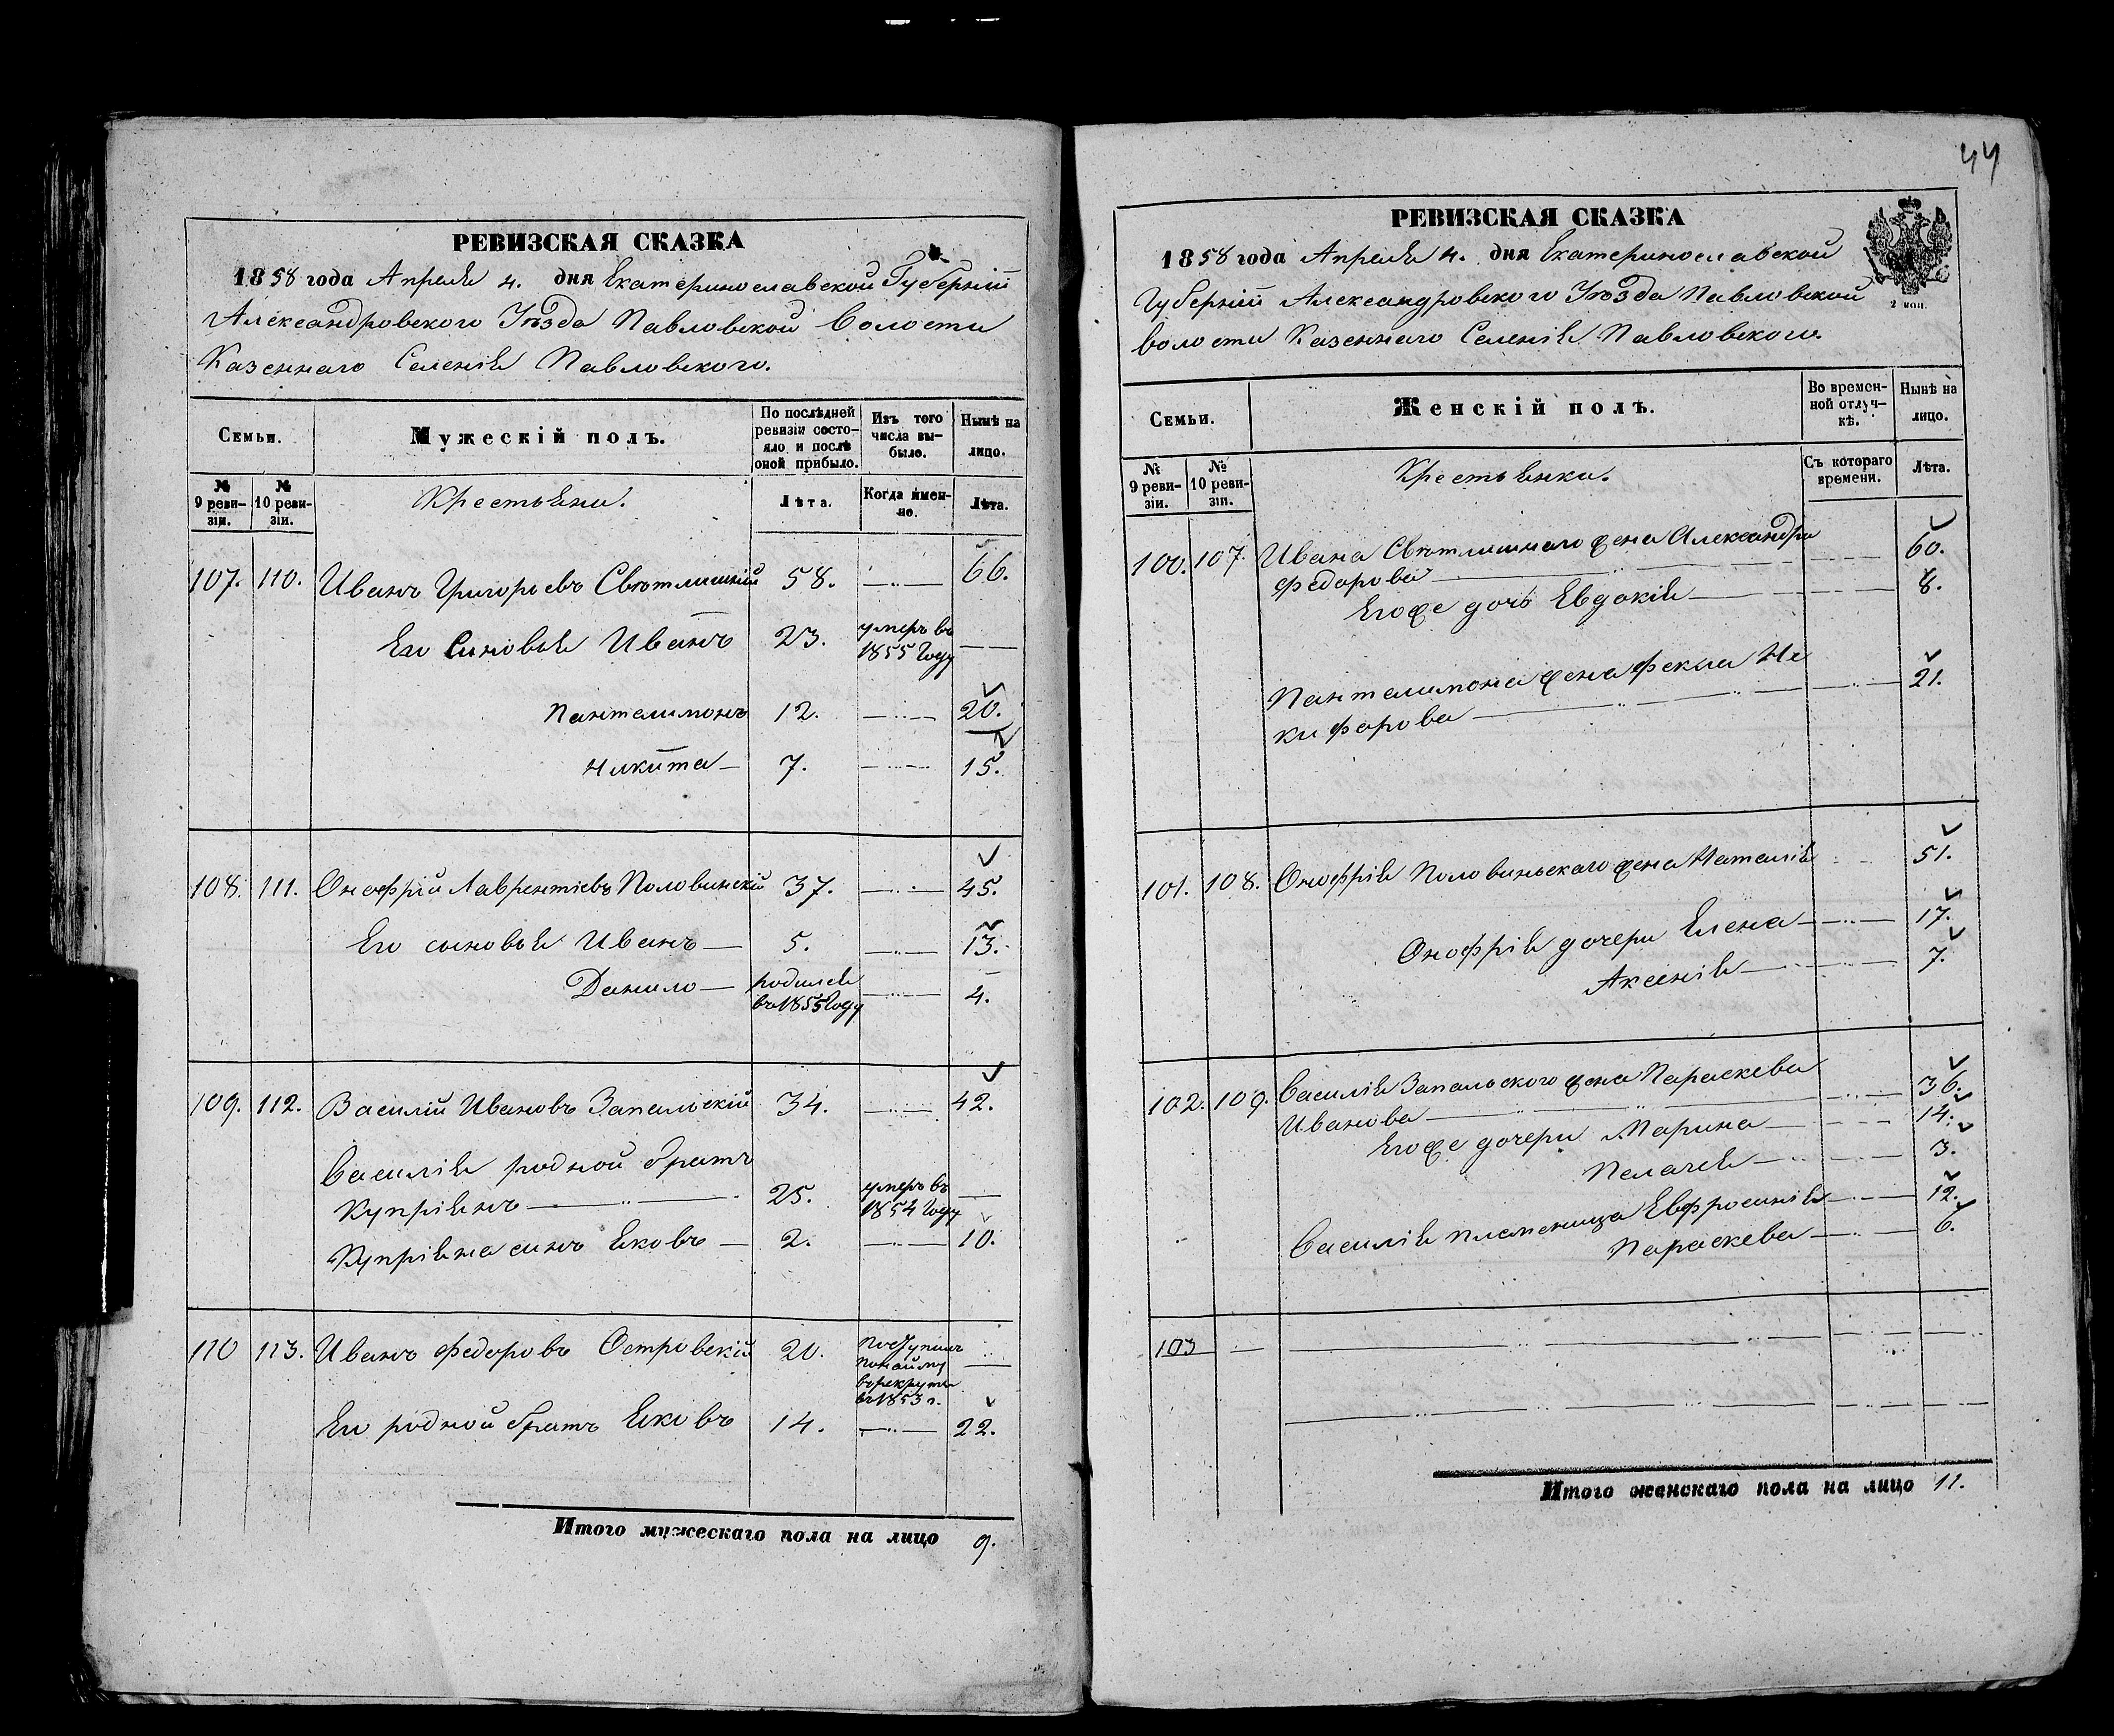 РЕВИЗСКАЯ СКАЗКА
1858 года Апреля 4. дня Екатеринославской Губерніи
Александровского Уѣзда Павловской Волости
Казеннаго Селенія Павловского.
Семьи. Мужескій полъ. По послѣдней ревизіи состояло и послѣ оной прибыло. Изъ того числа выбыло. Нынѣ на лицо.
№ 9 ревизіи. № 10 ревизіи. Крестьяни. Лѣта. Когда именно. Лѣта.
107. 110. Иванъ Григорьевъ Свѣтлишній 58. 66.
Его Синовья Иванъ 23. умеръ въ 1855 Году
Пантелимонъ 12. 20.
Никита 7. 15.
108. 111. Онофрій Лаврентіевъ Половинскій 37. 45.
Его сыновья Иванъ 5. 13.
Данило родился въ 1855 Году 4.
109. 112. Василій Ивановъ Запальскій 34. 42.
Василія родной братъ
Купріянъ 25. умеръ въ 1854 Году
Купріяна синъ Яковъ 2. 10.
110 113. Иванъ Федоровъ Островскій 20. Поступилъ понайму врекруты въ 1853 г.
Его родной братъ Яковъ 14. 22.
Итого мужескаго пола на лицо 9.
44
РЕВИЗСКАЯ СКАЗКА
1858 года Апреля 4. дня Екатеринославской
Губерніи Александровского Уѣзда Павловской
2 коп.
волости Казеннаго Селенія Павловского.
Семьи. Женскій полъ. Во временной отлучкѣ. Нынѣ на лицо.
№ 9 ревизіи. № 10 ревизіи. Крестьянки. Съ котораго времени. Лѣта.
100. 107. Ивана Свѣтлишнаго жена Александра
Федорова 60.
Егоже дочь Евдокія 8.
Пантелимона жена Фекла Не
кифорова 21.
101. 108. Онофрія Половиньскаго жена Наталія 51.
Онофрія дочери Елена 17.
Аксенія 7.
102. 109. Василія Запальского жена Параскева
Иванова 36.
Егоже дочери Марина 14.
Пелагея 3.
Василія племеница Евфросинія 12.
Параскева 6.
103
Итого женскаго пола на лицо 11.